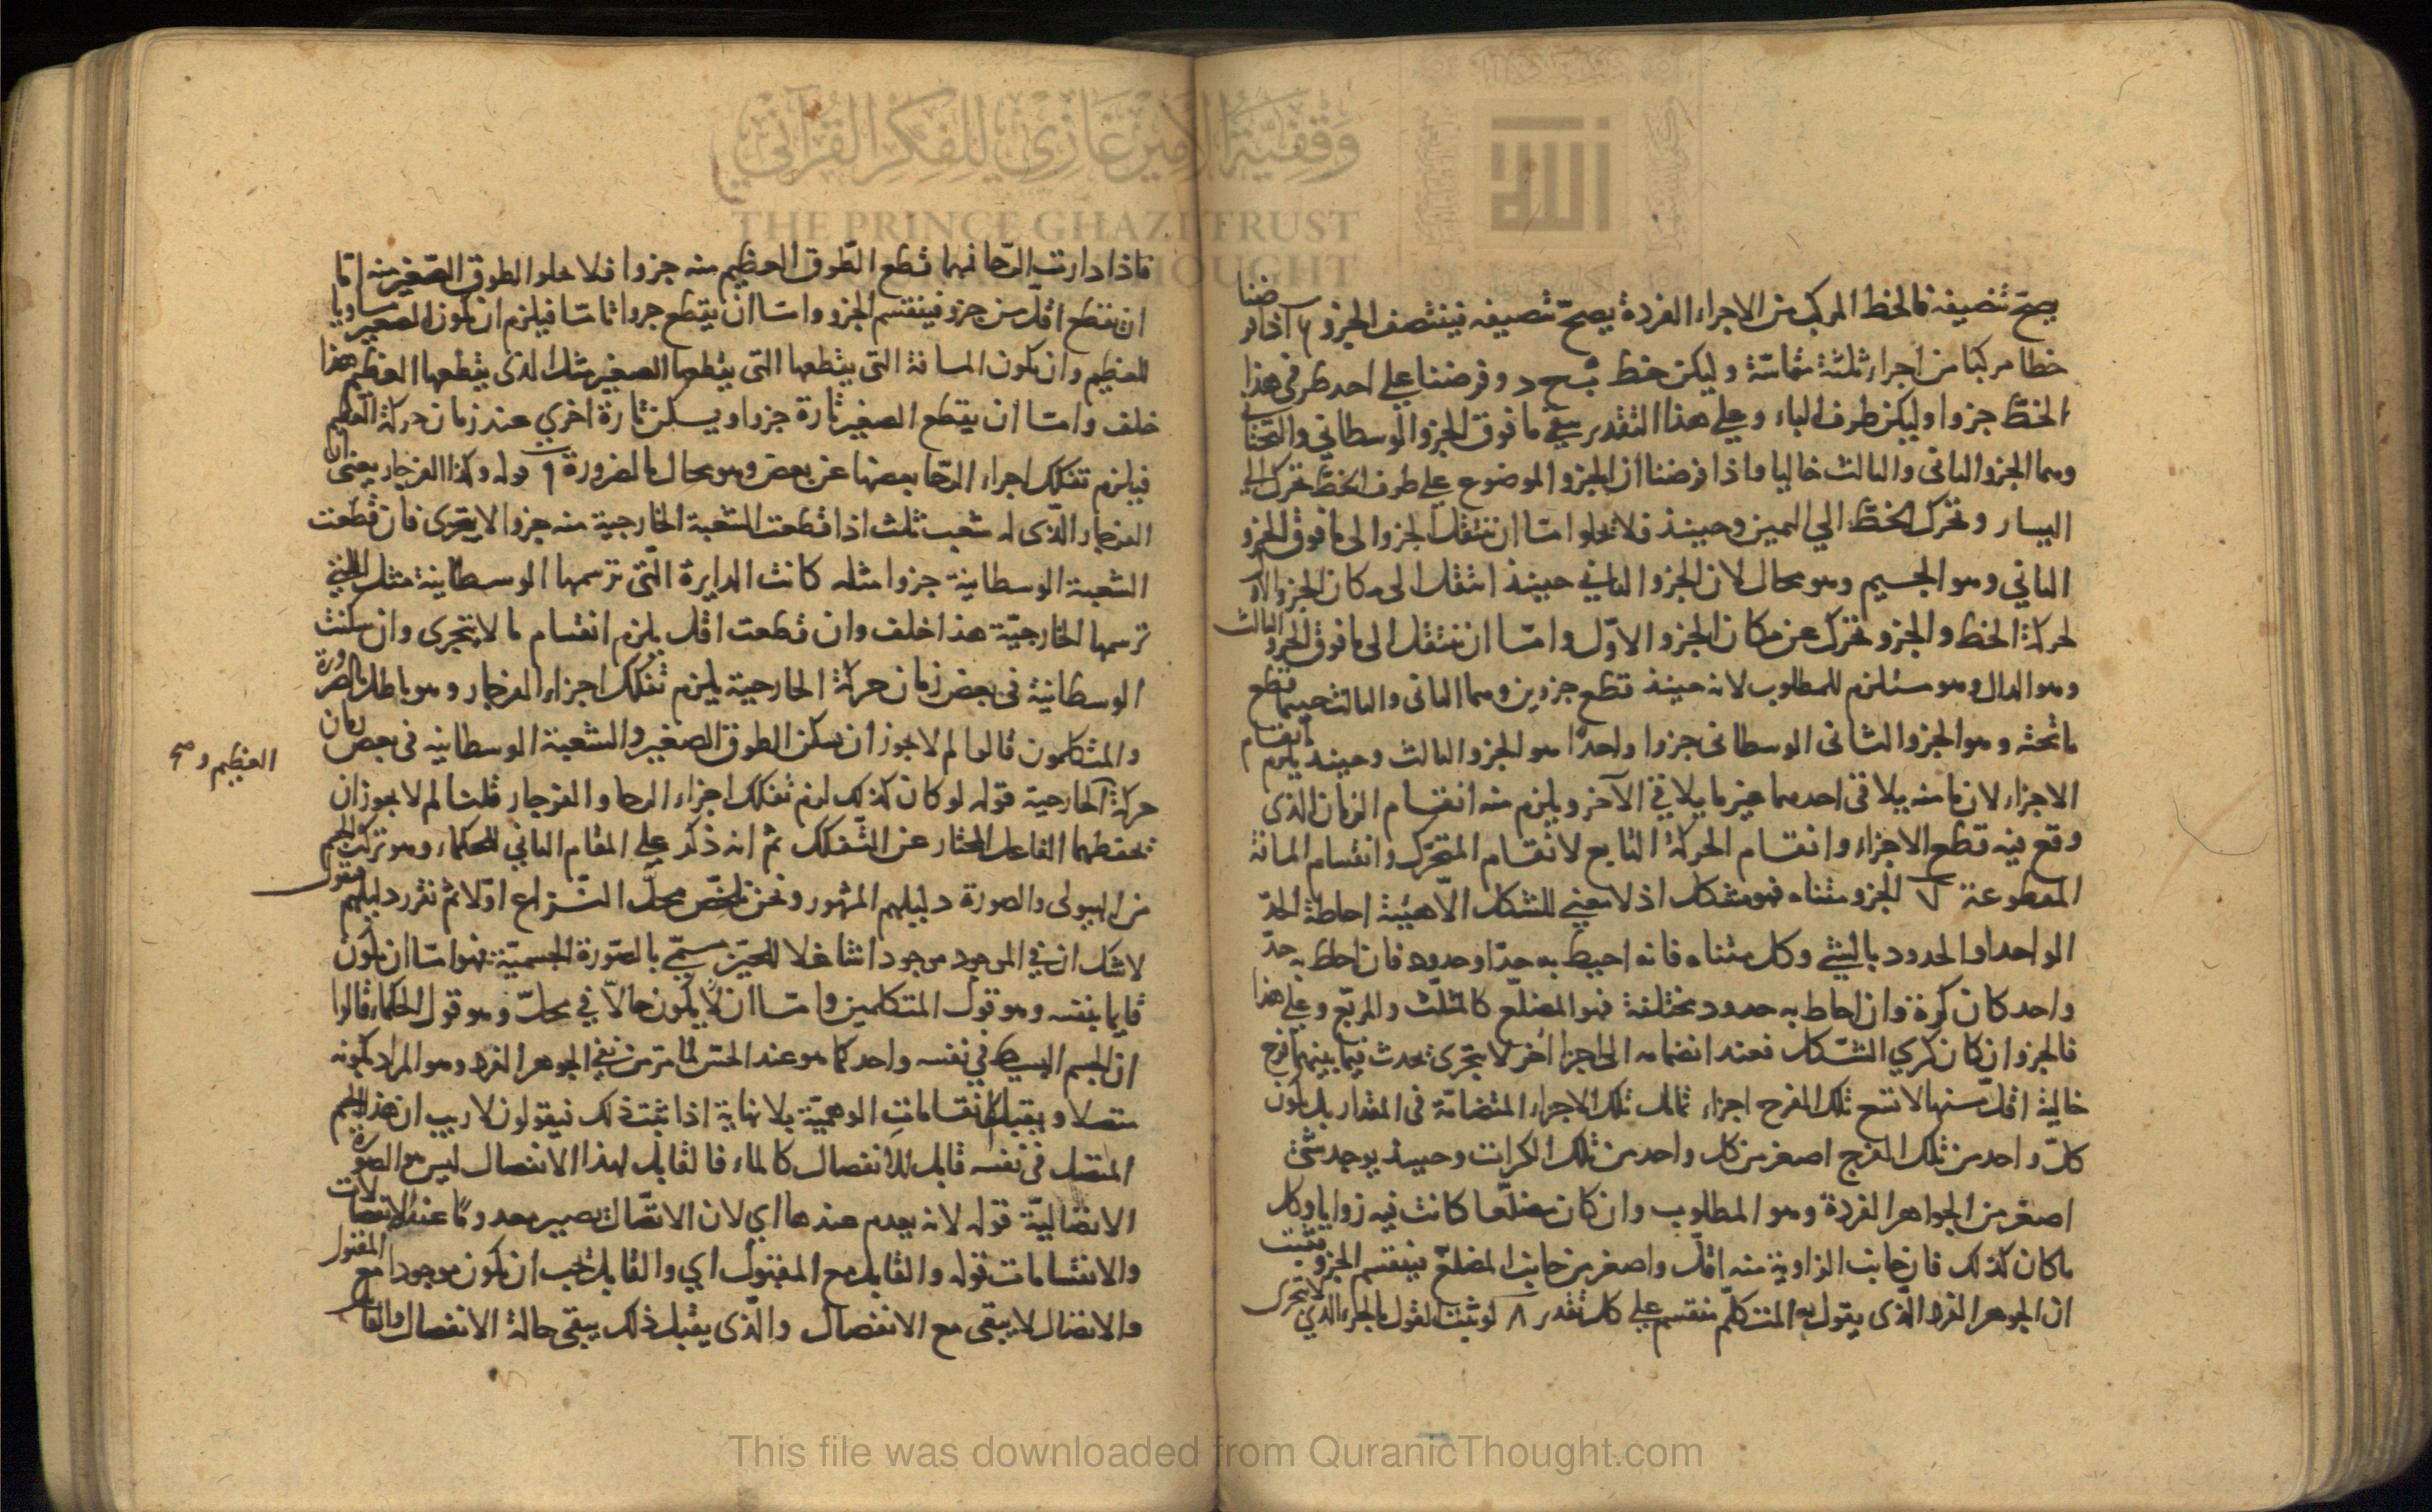 يصح تنصيفه فالخط المركب من الاجزاء الفردة يصح تنصيفه فينتصف الجزو ٦ اذا فرضنا
خطا مركبا من اجزاء ثلثة متماسّة وليكن خط ب ح د وفرضنا على احد طرفى هذا
الخط جزوا وليكن طرف الباء وعلى هذا التقدير يبقى ما فوق الجزو الوسطانى والتحتانى
وهما الجزو الثانى والثالث خاليا واذا فرضنا ان الجزو الموضوع على طرف الخط تحرك الى
اليسار وتحرك الخط الى اليمين وحينئذ فلا يخلوا امّا ان ينتقل الجزو الى ما فوق الجزو
الثاني وهو الجسيم وهو محال لان الجزو الثاني حينئذ انتقل الى مكان الجزو الاول
لحركة الخط والجزو تحرك عن مكان الجزو الاوّل وامّا ان ينتقل الى ما فوق الجزو الثالث
وهو الدال وهو مستلزم للمطلوب لانه حينئذ قطع جزوين وهما الثانى والثالث حينما قطع
ما تحته وهو الجزو الثانى الوسطانى جزوا واحدًا هو الجزو الثالث وحينئذ يلزم انقسام
الاجزاء لان ما منه يلاقى احدهما غير ما يلاقى الآخر ويلزم منه انقسام الزمان الذى
وقع فيه قطع الاجزاء وانقسام الحركة التابع لانقسام المتحرك وانقسام المسافة
المقطوعة ٧ الجزو متناه فهو مشكل اذ لا معنى للشكل الّا هيئة احاطة الحدّ
الواحد او الحدود بالشئ وكل متناه فانه احيط به حدّ او حدود فان احاط به حدّ
واحد كان كرة وان احاط به حدود مختلفة فهو المضلّع كالمثلّث والمربّع وعلى هذا
فالجزو ان كان كري الشكل فعند انضمامه الى اجزا اخر لا يتجزى تحدث فيما بينهما فرج
خالية اقلّ منها لا تسع تلك الفرج اجزاء تماثل تلك الاجزاء المتضامّة في المقدار بل يكون
كلّ واحد من تلك الفرج اصغر من كل واحد من تلك الكرات وحينئذ يوجد شئ
اصغر من الجواهر الفردة وهو المطلوب وان كان مضلّعا كانت فيه زوايا وكل
ما كان كذلك فان جانب الزاوية منه اقلّ واصغر من جانب المضلّع فينقسم الجزو فثبت
ان الجوهر الفرد الّذى يقول به المتكلّم منقسم على كل تقدير ٨ لو ثبت القول بالجزء الذي لا يتجزى
فاذا دارت الرّحا فبها قطع الطّوق العظيم منه جزوا فلا يخلوا الطوق الصّغير منه امّا
ان يقطع اقلّ من جزو فينقسم الجزو وامّا ان يقطع جزوا تامّا فيلزم ان يكون الصغير مساويا
للعظيم وان يكون المسافة التى يقطعها التى يقطعها الصغير مثل الذى يقطعها العظيم هذا
خلف وامّا ان يقطع الصغير تارة جزوا ويسكن تارة اخرى عند زمان حركة العظيم
فيلزم تفكك اجزاء الرّحا بعضها عن بعض وهو محال بالضرورة ٩ قوله وكذا الفرجار يعنى ان
الفرجار الّذى له شعب ثلث اذا قطعت الشعبة الخارجية منه جزوا لا يتجزى فان قطعت
الشعبة الوسطانية جزوا مثله كانت الدايرة الّتى ترسمها الوسطانية مثل التى
ترسمها الخارجيّة هذا خلف وان قطعت اقل يلزم انقسام ما لا يتجزى وان سكنت
الوسطانية فى بعض زمان حركة الخارجية يلزم تفكك اجزاء الفرجار وهو باطل بالضرورة
والمتكلمون قالوا لم لا يجوز ان يسكن الطوق الصغير والشعبة الوسطانيه فى بعض زمان
العظيم و صح
حركة الخارجية قوله لو كان كذلك لزم تفكك اجزاء الرحا والفرجار قلت لم لا يجوز ان
يحفظهما الفاعل المختار عن التّفكك ثم انه ذكر على المقام الثاني للحكماء وهو تركب الجسم
من الهيولى والصورة دليلهم المشهور ونحن نلخّص محلّ النّزاع اوّلا ثم نقرر دليلهم فنقول
لا شك ان في الموجود موجودا شاغلا للحيّز يسمّى بالصّورة الجسميّة فهو امّا ان يكون
قايما بنفسه وهو قول المتكلمين وامّا ان لا يكون حالّا في محلّ وهو قول الحكماء قالوا
ان الجسم البسيط في نفسه واحد كما هو عند الحس لما مر من نفى الجوهر الفرد وهو المراد بكونه
متصلا ويقبل انقسامات الوهميّة بلا نهاية اذا ثبت ذلك فيقولون لا ريب ان هذا الجسم
المتصل فى نفسه قابل للانفصال كالماء فالقابل لهذا الانفصال ليس هو الصورة
الاتصاليّة قوله لانه يعدم عندها اي لان الاتصال يصير معدومًا عند الانفصالات
والانقسامات قوله والقابل مع المقبول اي والقابل يجب ان يكون موجودا مع المقبول
والاتصال لا يبقى مع الانفصال والّذى يقبل ذلك يبقى حالة الانفصال
وقفية الأمير غازي للفكر القرآني
THE PRINCE GHAZI TRUST
THOUGHT
الله
This file was downloaded from QuranicThought.com